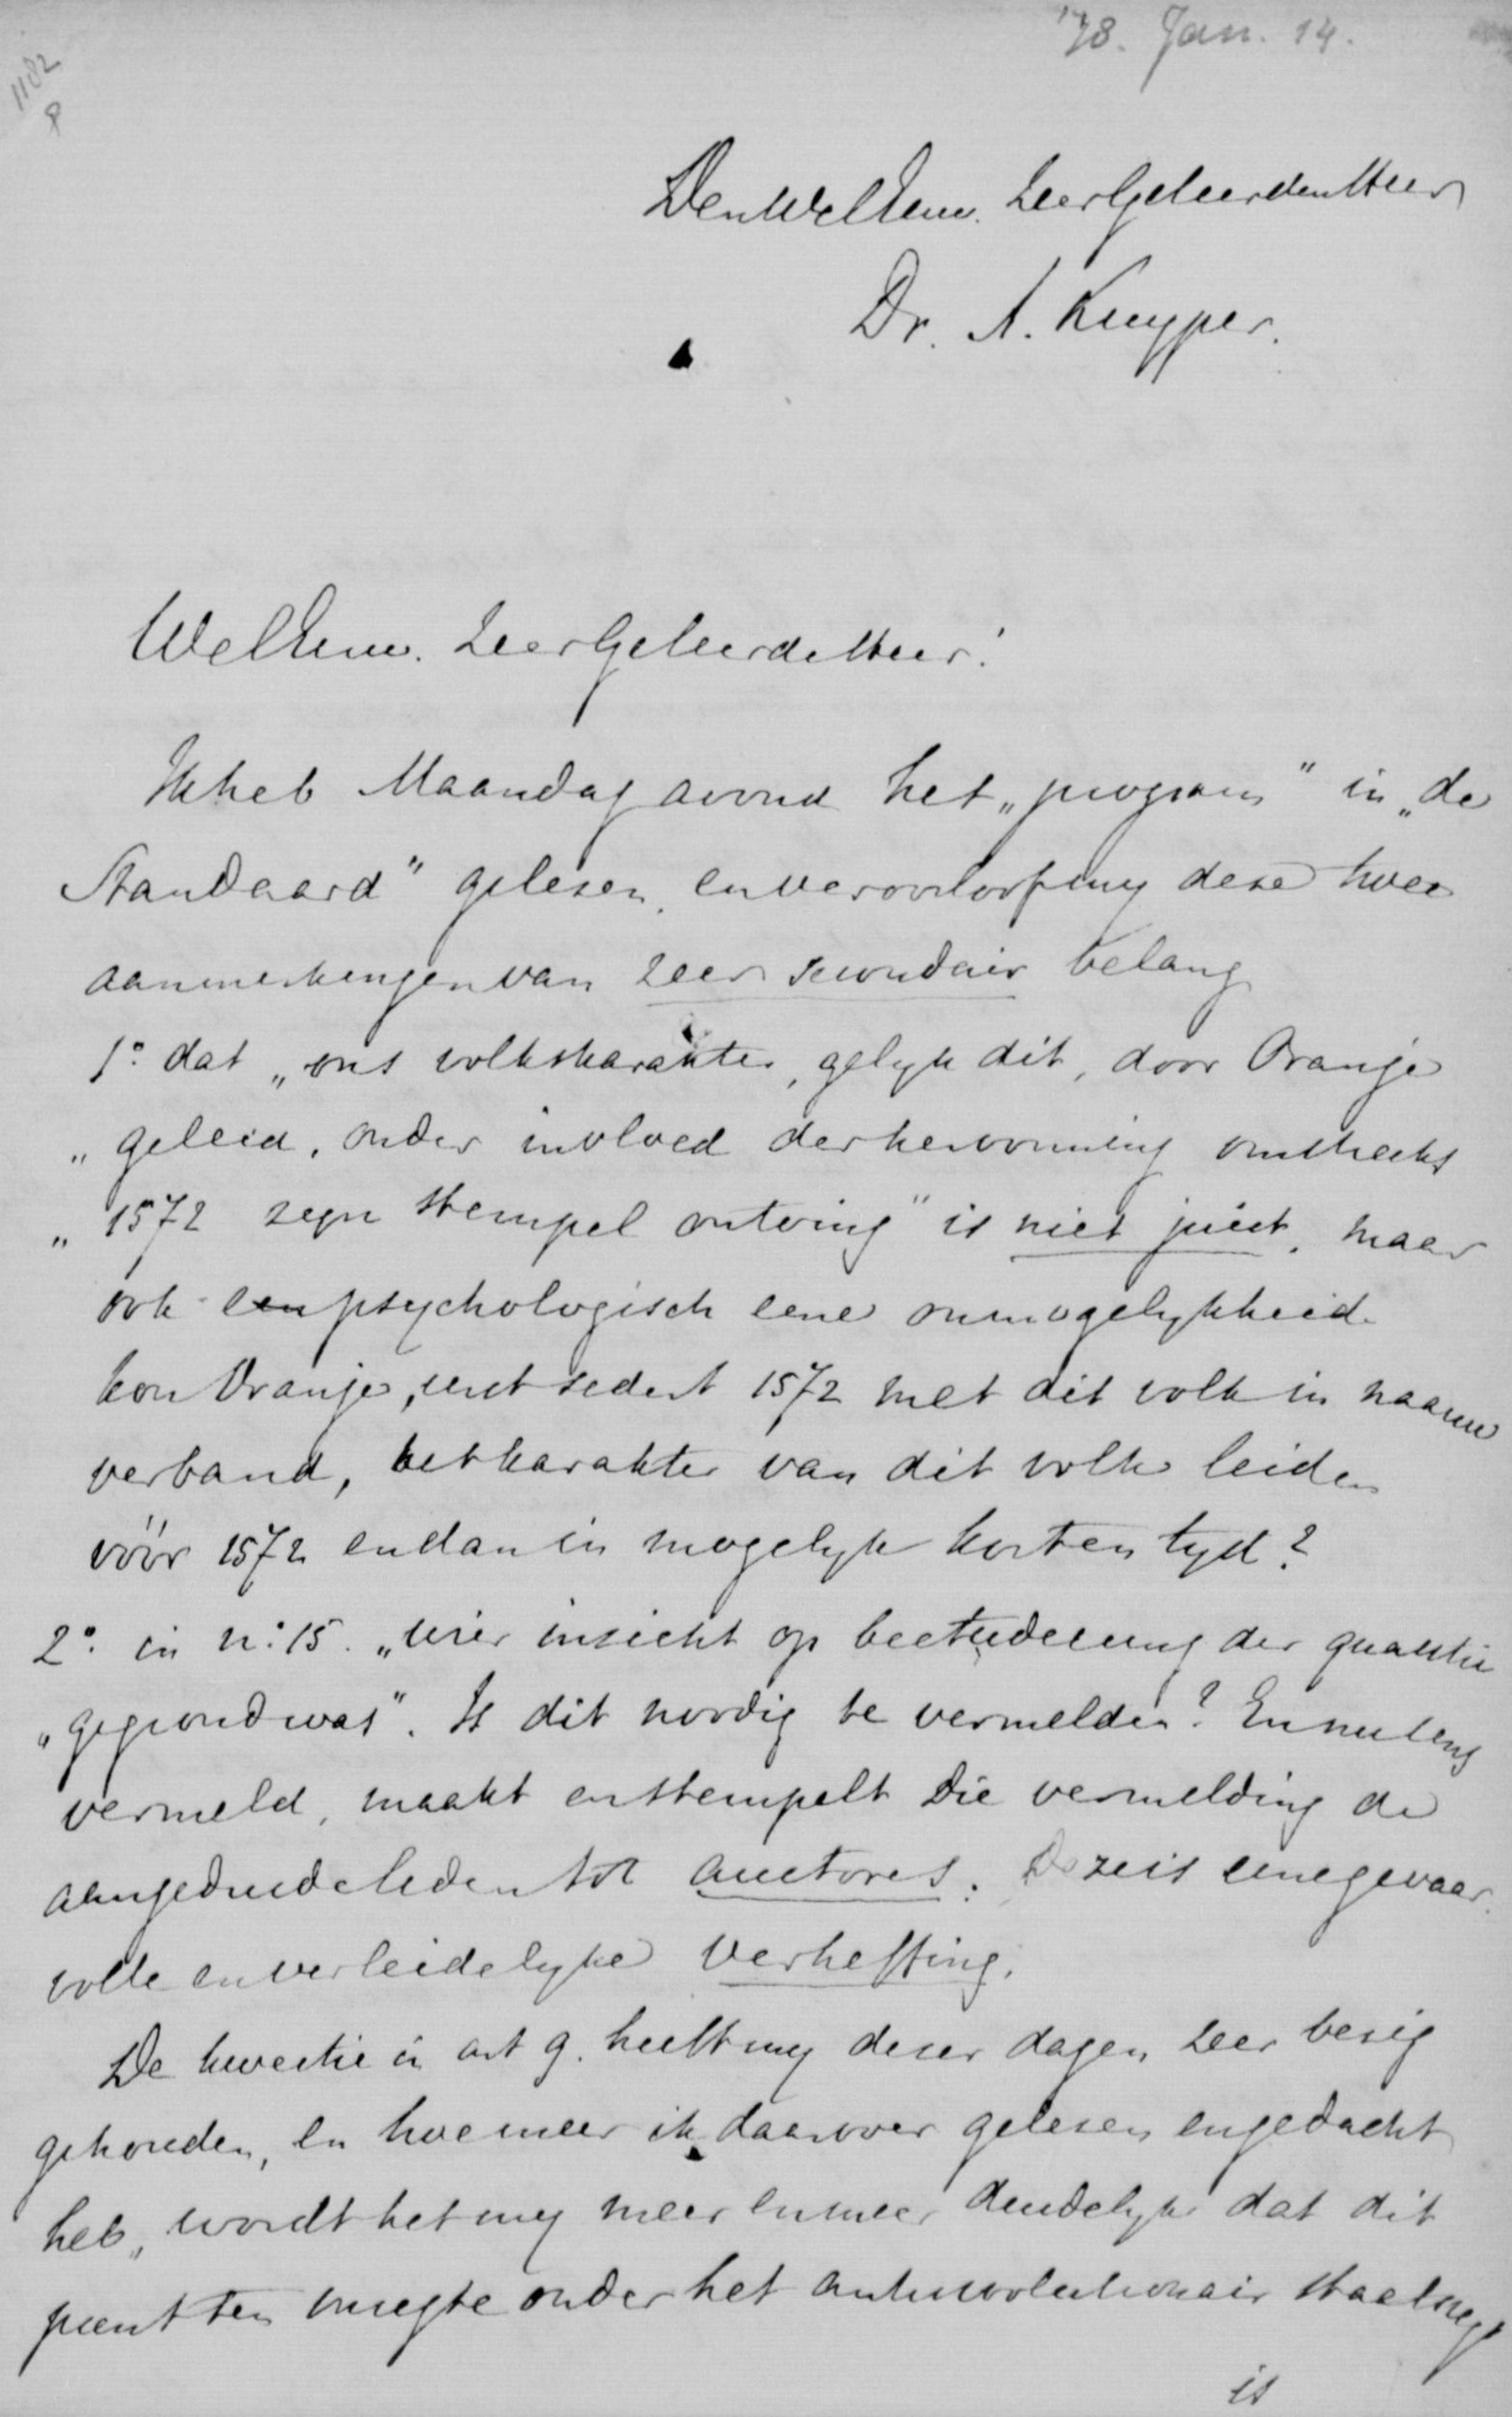 '78. Jan. 14.
1182
8
Den WelEerw. ZeerGeleerden Heer
Dr. A. Kuyper.
WelEerw. ZeerGeleerde Heer!
Ik heb Maandag avond het „program" in „de
Standaard" gelezen, en veroorloof my deze twee
aanmerkingen van zeer secondair belang
1o. dat „ons volkskarakter, gelyk dit, door Oranje
„geleid, onder invloed der hervorming omstreeks
„1572 zyn stempel ontving" is niet juist, maar
ook een psychologisch eene onmogelykheid.
kon Oranje, eerst sedert 1572 met dit volk in naauw
verband, het karakter van dit volk leiden
vóór 1572 en dan in mogelyk korten tyd?
2o. in no. 15. „wier inzicht op bestudeering der quaestie
„gegrond was". Is dit noodig te vermelden? En nuttig
vermeld, maakt en stempelt die vermelding de
aangeduide leden tot auctores. Deze is eene gevaar-
volle en verleidelyke verheffing.
De kwestie in art 9. heeft my dezer dagen zeer bezig
gehouden, en hoe meer ik daarover gelezen en gedacht
heb, wordt het my meer en meer duidelyk dat dit
punt ten onregte onder het antirevolutionair staatsregt
is